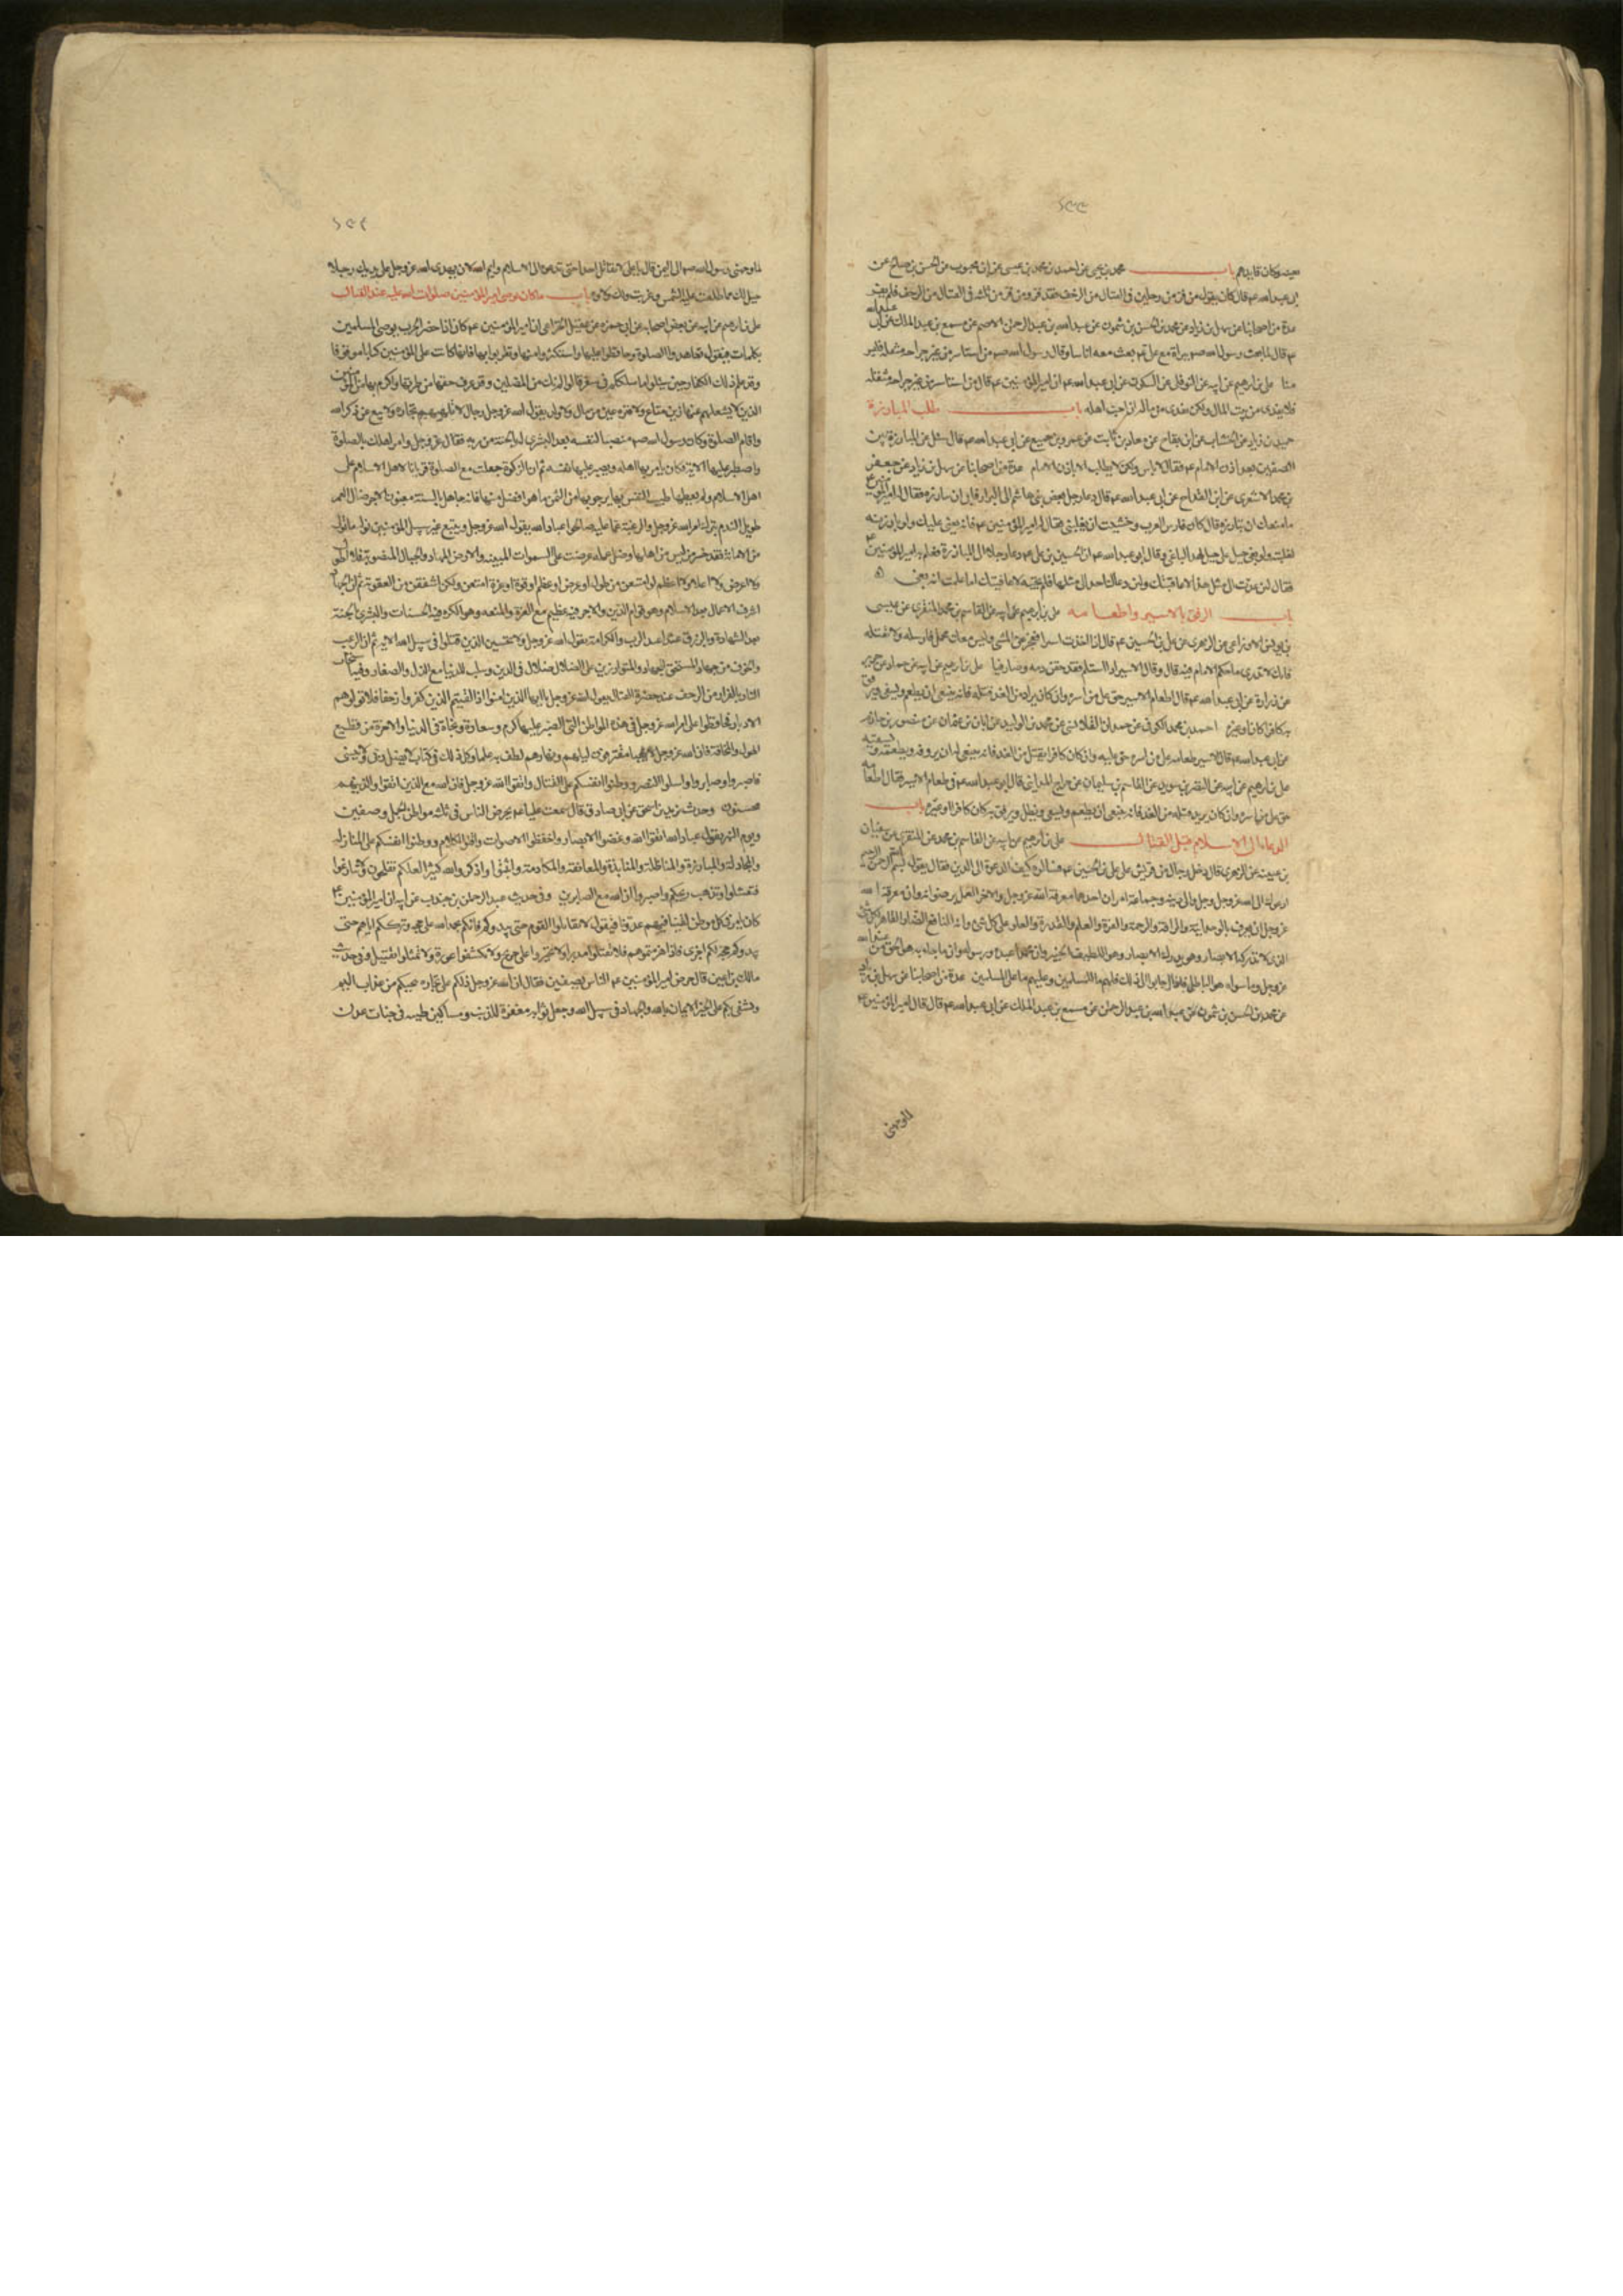 باب محمد بن يحيى عن احمد بن محمد بن عيسى عن ابن محبوب عن الحسن بن صالح عن
ابى عبد الله عم قال كان يقول من فر من رجلين فى القتال من الزحف فقد فر ومن فر من ثلثة فى القتال من الزحف فلم يفر
عدة من اصحابنا عن سهل بن زياد عن محمد بن الحسن بن شمون عن عبد الله بن عبد الرحمن الاصم عن مسمع بن عبد الملك عن ابى
عم قال لما بعث رسول الله صم ببراة مع على عم بعث معه اناسا وقال رسول الله صم من استاسر من غير جراحة مثقلة فليس
منا على بن ابرهيم عن ابيه عن النوفلى عن السكونى عن ابى عبد الله عم ان امير المؤمنين عم قال من استاسر من غير جراحة مثقلة
فلا يفدى من بيت المال ولكن يفدى من ماله ان احب اهله باب طلب المبارزة
حميد بن زياد عن الخشاب عن ابن بقاح عن معاذ بن ثابت عن عمرو بن جميع عن ابى عبد الله عم قال سئل عن المبارزة بين
الصفين بعد اذن الامام عم فقال لا باس ولكن لا يطلب الا باذن الامام عدة من اصحابنا عن سهل بن زياد عن جعفر
بن محمد الاشعرى عن ابن القداح عن ابى عبد الله عم قال دعا رجل بعض بنى هاشم الى البراز فابى ان يبارزه فقال له امير المؤمنين
ما منعك ان تبارزه قال كان فارس العرب وخشيت ان يغلبنى فقال له امير المؤمنين عم فانه بغى عليك ولو بارزته
لغلبته ولو بغى جبل على جبل لهد الباغى وقال ابو عبد الله عم ان الحسين بن على عم دعا رجلا الى المبارزة فعلم به امير المؤمنين
فقال لئن عدت الى مثل هذا لاعاقبنك ولئن دعاك احد الى مثلها فلم تجبه لاعاقبنك اما علمت انه بغى
باب الرفق بالاسير واطعامه على بن ابرهيم عن ابيه عن القاسم بن محمد المنقرى عن عيسى
بن يونس الاوزاعى عن الزهرى عن على بن الحسين عم قال اذا اخذت اسيرا فعجز عن المشى وليس معك محمل فارسله ولا تقتله
فانك لا تدرى ما حكم الامام فيه قال وقال الاسير اذا اسلم فقد حقن دمه وصار فيئا على بن ابرهيم عن ابيه عن حماد عن حريز
عن زرارة عن ابى عبد الله عم قال اطعام الاسير حق على من اسره وان كان يراد من الغد قتله فانه ينبغى ان يطعم ويسقى ويرفق
به كافرا كان او غيره احمد بن محمد الكوفى عن حمدان القلانسى عن محمد بن الوليد عن ابان بن عثمان عن منصور بن حازم
عن ابى عبد الله عم قال الاسير طعامه على من اسره حق عليه وان كان كافرا يقتل من الغد فانه ينبغى له ان
على بن ابرهيم عن ابيه عن النضر بن سويد عن القاسم بن سليمان عن جراح المداينى قال ابو عبد الله عم فى طعام الاسير فقال اطعامه
حق على من اسره وان كان يريد قتله من الغد فانه ينبغى ان يطعم ويسقى ويظل ويرفق به كان كافرا او غيره باب
الدعاء الى الاسلام قبل القتال على بن ابرهيم عن ابيه عن القاسم بن محمد عن المنقرى عن سفيان
بن عيينة عن الزهرى قال دخل رجال من قريش على على بن الحسين عم فسالوه كيف الدعوة الى الدين فقال يقول بسم الله الرحمن الرحيم
ادعوك الى الله عز وجل والى دينه وجماعه امران احدهما معرفة الله عز وجل والاخر العمل برضوانه وان معرفة الله
عز وجل ان يعرف بالوحدانية والرافة والرحمة والعزة والعلم والقدرة والعلو على كل شئ وانه النافع الضار القاهر لكل شئ
الذى لا تدركه الابصار وهو يدرك الابصار وهو اللطيف الخبير وان محمدا عبده ورسوله وان ما جاء به هو الحق من عند الله
عز وجل وما سواه هو الباطل فاذا اجابوا الى ذلك فلهم ما للمسلمين وعليهم ما على المسلمين عدة من اصحابنا عن سهل بن زياد
عن محمد بن الحسن بن شمون عن عبد الله بن عبد الرحمن عن مسمع بن عبد الملك عن ابى عبد الله عم قال قال امير المؤمنين عم
لما وجهنى رسول الله صم الى اليمن قال يا على لا تقاتل احدا حتى تدعوه الى الاسلام وايم الله لان يهدى الله عز وجل على يديك رجلا
خير لك مما طلعت عليه الشمس وغربت ولك ولاؤه باب ما كان يوصى امير المؤمنين صلوات الله عليه عند القتال
على بن ابرهيم عن ابيه عن بعض اصحابه عن ابى حمزه عن عقيل الخزاعى ان امير المؤمنين عم كان اذا حضر الحرب يوصى المسلمين
بكلمات فيقول تعاهدوا الصلوة وحافظوا عليها واستكثروا منها وتقربوا بها فانها كانت على المؤمنين كتابا موقوتا
وقد علم ذلك الكفار حين سئلوا ما سلككم فى سقر قالوا لم نك من المصلين وقد عرف حقها من طرقها واكرم بها من المؤمنين
الذين لا يشغلهم عنها زين متاع ولا قرة عين من مال ولا ولد يقول الله عز وجل رجال لا تلهيهم تجارة ولا بيع عن ذكر الله
واقام الصلوة وكان رسول الله صم منصبا لنفسه بعد البشرى له بالجنة من ربه فقال عز وجل وامر اهلك بالصلوة
واصطبر عليها الاية فكان يامر بها اهله ويصبر عليها نفسه ثم ان الزكوة جعلت مع الصلوة قربانا لاهل الاسلام على
اهل الاسلام ولم يعطها طيب النفس بها يرجو بها من الثمن ما هو افضل منها فانه جاهل بالسنة مغبون الاجر ضال العمر
طويل الندم بترك امر الله عز وجل والرغبة عما عليه صالحوا عباد الله يقول الله عز وجل ويتبع غير سبيل المؤمنين نوله ما تولى
من الامانة فقد خسر من ليس من اهلها وضل عمله عرضت على السموات المبنيه والارض المهاد والجبال المنصوبة فلا اطول
ولا اعرض ولا اعلا ولا اعظم لو امتنعن من طول او عرض او عظم او قوة او عزة امتنعن ولكن اشفقن من العقوبة ثم ان الجهاد
اشرف الاعمال بعد الاسلام وهو قوام الدين والاجر فيه عظيم مع العزة والمنعه وهو الكره فيه الحسنات والبشرى بالجنة
بعد الشهادة وبالرزق غدا عند الرب والكرامة يقول الله عز وجل ولا تحسبن الذين قتلوا فى سبيل الله الاية ثم ان الرعب
والخوف من جهاد المستحق للجهاد والمتوازرين على الضلال ضلال فى الدين وسلب للدنيا مع الذل والصغار وفيه استيجاب
النار بالفرار من الزحف عند حضرة القتال يقول الله عز وجل يا ايها الذين امنوا اذا لقيتم الذين كفروا زحفا فلا تولوهم
الادبار فحافظوا على امر الله عز وجل فى هذه المواطن التى الصبر عليها كرم وسعادة ونجاة فى الدنيا والاخرة من فظيع
الهول والمخافة فان الله عز وجل لا يعبا بما العباد مقترفون ليلهم ونهارهم لطف به علما وكل ذلك فى كتاب لا يضل ربى ولا ينسى
فاصبروا وصابروا واسالوا النصر ووطنوا انفسكم على القتال واتقوا الله عز وجل فان الله مع الذين اتقوا والذين هم
محسنون وحدث يزيد بن اسحق عن ابى صادق قال سمعت عليا عم يحرض الناس فى ثلثه مواطن الجمل وصفين
ويوم النهر يقول عباد الله اتقوا الله وغضوا الابصار واخفظوا الاصوات واقلوا الكلام ووطنوا انفسكم على المنازله
والمجادلة والمبارزة والمناظلة والمنابذة والمعانقة والمكادمة واثبتوا واذكروا الله كثيرا لعلكم تفلحون ولا تنازعوا
فتفشلوا وتذهب ريحكم واصبروا ان الله مع الصابرين وفى حديث عبد الرحمن بن جندب عن ابيه ان امير المؤمنين عم
كان يامر فى كل موطن لقينا فيه عدونا فيقول لا تقاتلوا القوم حتى يبدوكم فانكم بحمد الله على حجة وترككم اياهم حتى
يبدوكم حجة لكم اخرى فاذا هزمتموهم فلا تقتلوا مدبرا ولا تجيزوا على جريح ولا تكشفوا عورة ولا تمثلوا بقتيل وفى حديث
مالك بن اعين قال حرض امير المؤمنين عم الناس بصفين فقال ان الله عز وجل دلكم على تجارة تنجيكم من عذاب اليم
وتشفى بكم على الخير الايمان بالله والجهاد فى سبيل الله وجعل ثوابه مغفرة للذنب ومساكن طيبه فى جنات عدن